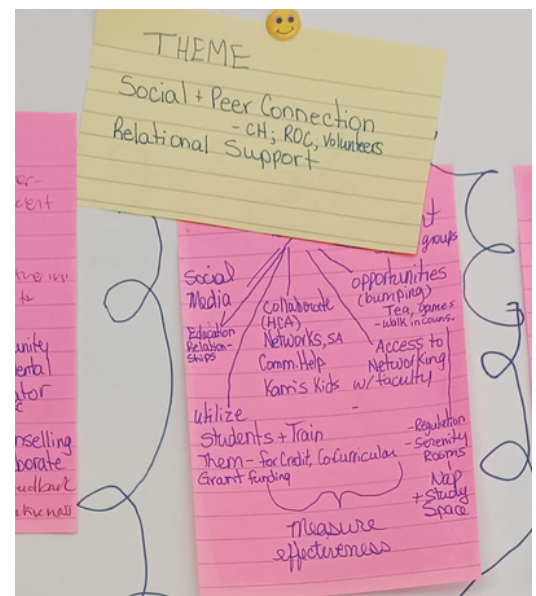 THEME
Social + Peer Connection
- CH; ROC, Volunteers
Relational Support
groups
Social
Media
Education
Relation-
ships
Collaborate
(HCA)
Networks, SA
Comm. Help
Kami's Kids
opportunities
(bumping)
Tea, games
- walk in couns.
Access to
Networking
w/ faculty
utilize
students + Train
Them - for Credit, CoCurricular
Grant funding
- Regulation
- Serenity
Rooms
Nap
+ Study
Space
Measure
effectiveness
unity
ental
ator
nselling
borate